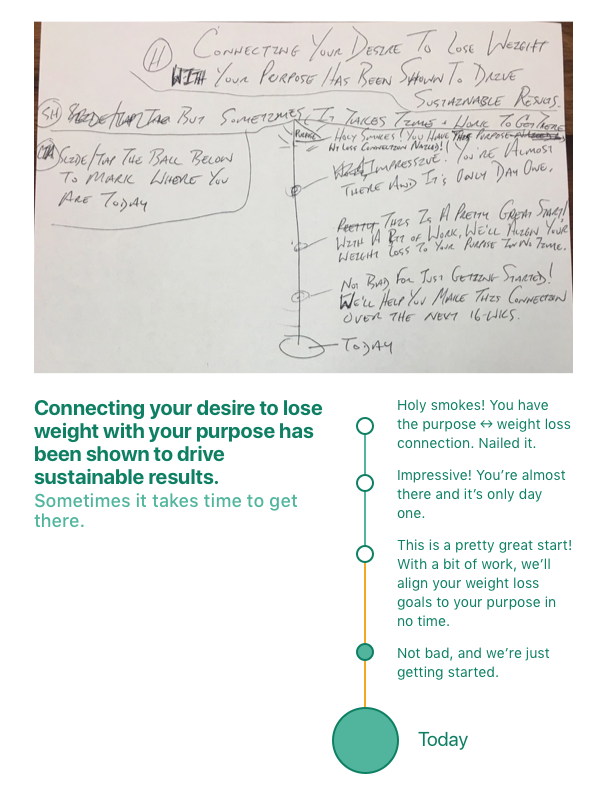 (H) CONNECTING YOUR DESIRE TO LOSE WEIGHT
WITH YOUR PURPOSE HAS BEEN SHOWN TO DRIVE
SUSTAINABLE RESULTS.
(SH) BUT SOMETIMES, IT TAKES TIME + WORK TO GET THERE
SLIDE/TAP THE BALL BELOW
TO MARK WHERE YOU
ARE TODAY
PURPOSE
HOLY SMOKES! YOU HAVE THE PURPOSE
WT LOSS CONNECTION NAILED!
IMPRESSIVE. YOU'RE ALMOST
THERE AND IT'S ONLY DAY ONE.
PRETTY THIS IS A PRETTY GREAT START!
WITH A BIT OF WORK, WE'LL ALIGN YOUR
WEIGHT LOSS TO YOUR PURPOSE IN NO TIME.
NOT BAD FOR JUST GETTING STARTED!
WE'LL HELP YOU MAKE THIS CONNECTION
OVER THE NEXT 16-WKS.
TODAY
Connecting your desire to lose
weight with your purpose has
been shown to drive
sustainable results.
Sometimes it takes time to get
there.
Holy smokes! You have
the purpose ↔ weight loss
connection. Nailed it.
Impressive! You’re almost
there and it’s only day
one.
This is a pretty great start!
With a bit of work, we’ll
align your weight loss
goals to your purpose in
no time.
Not bad, and we’re just
getting started.
Today